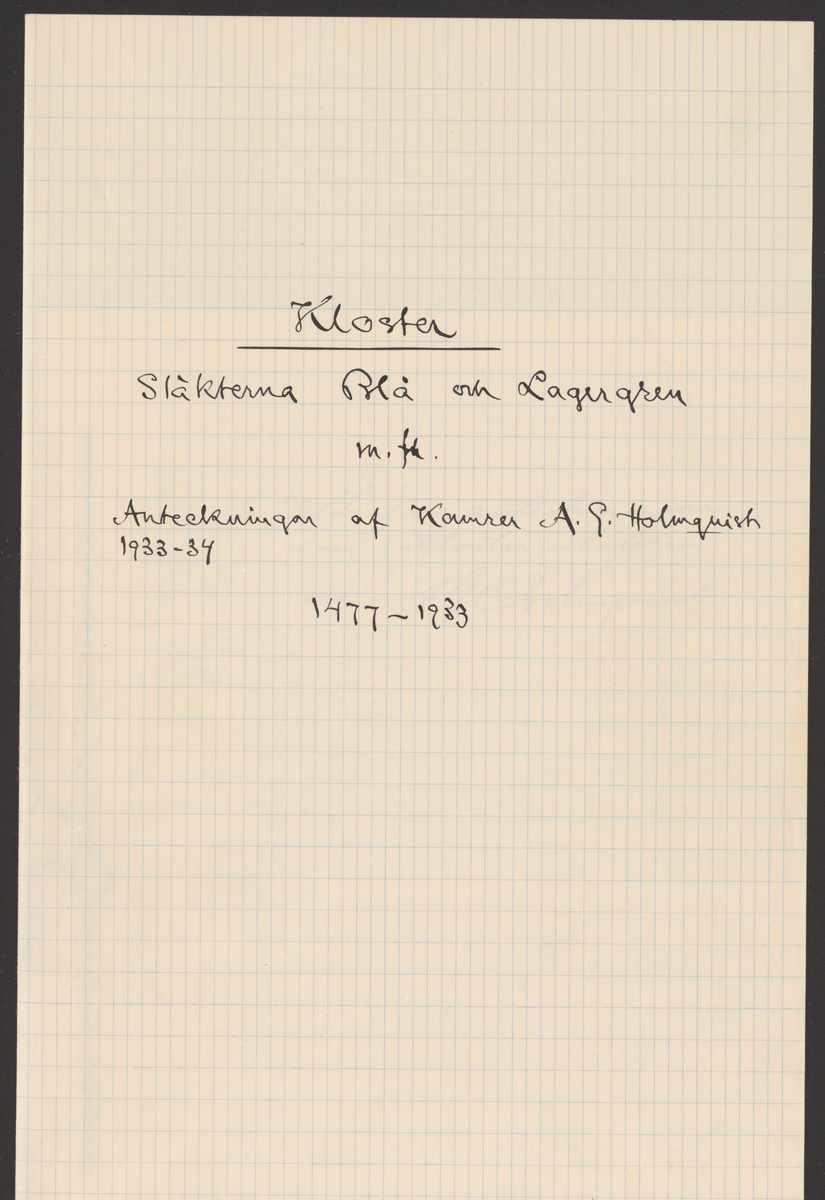 Kloster
Släkterna Blå och Lagergren
m. fl.
Anteckningar af Kamrer A. G. Holmquist
1933-34
1477-1933